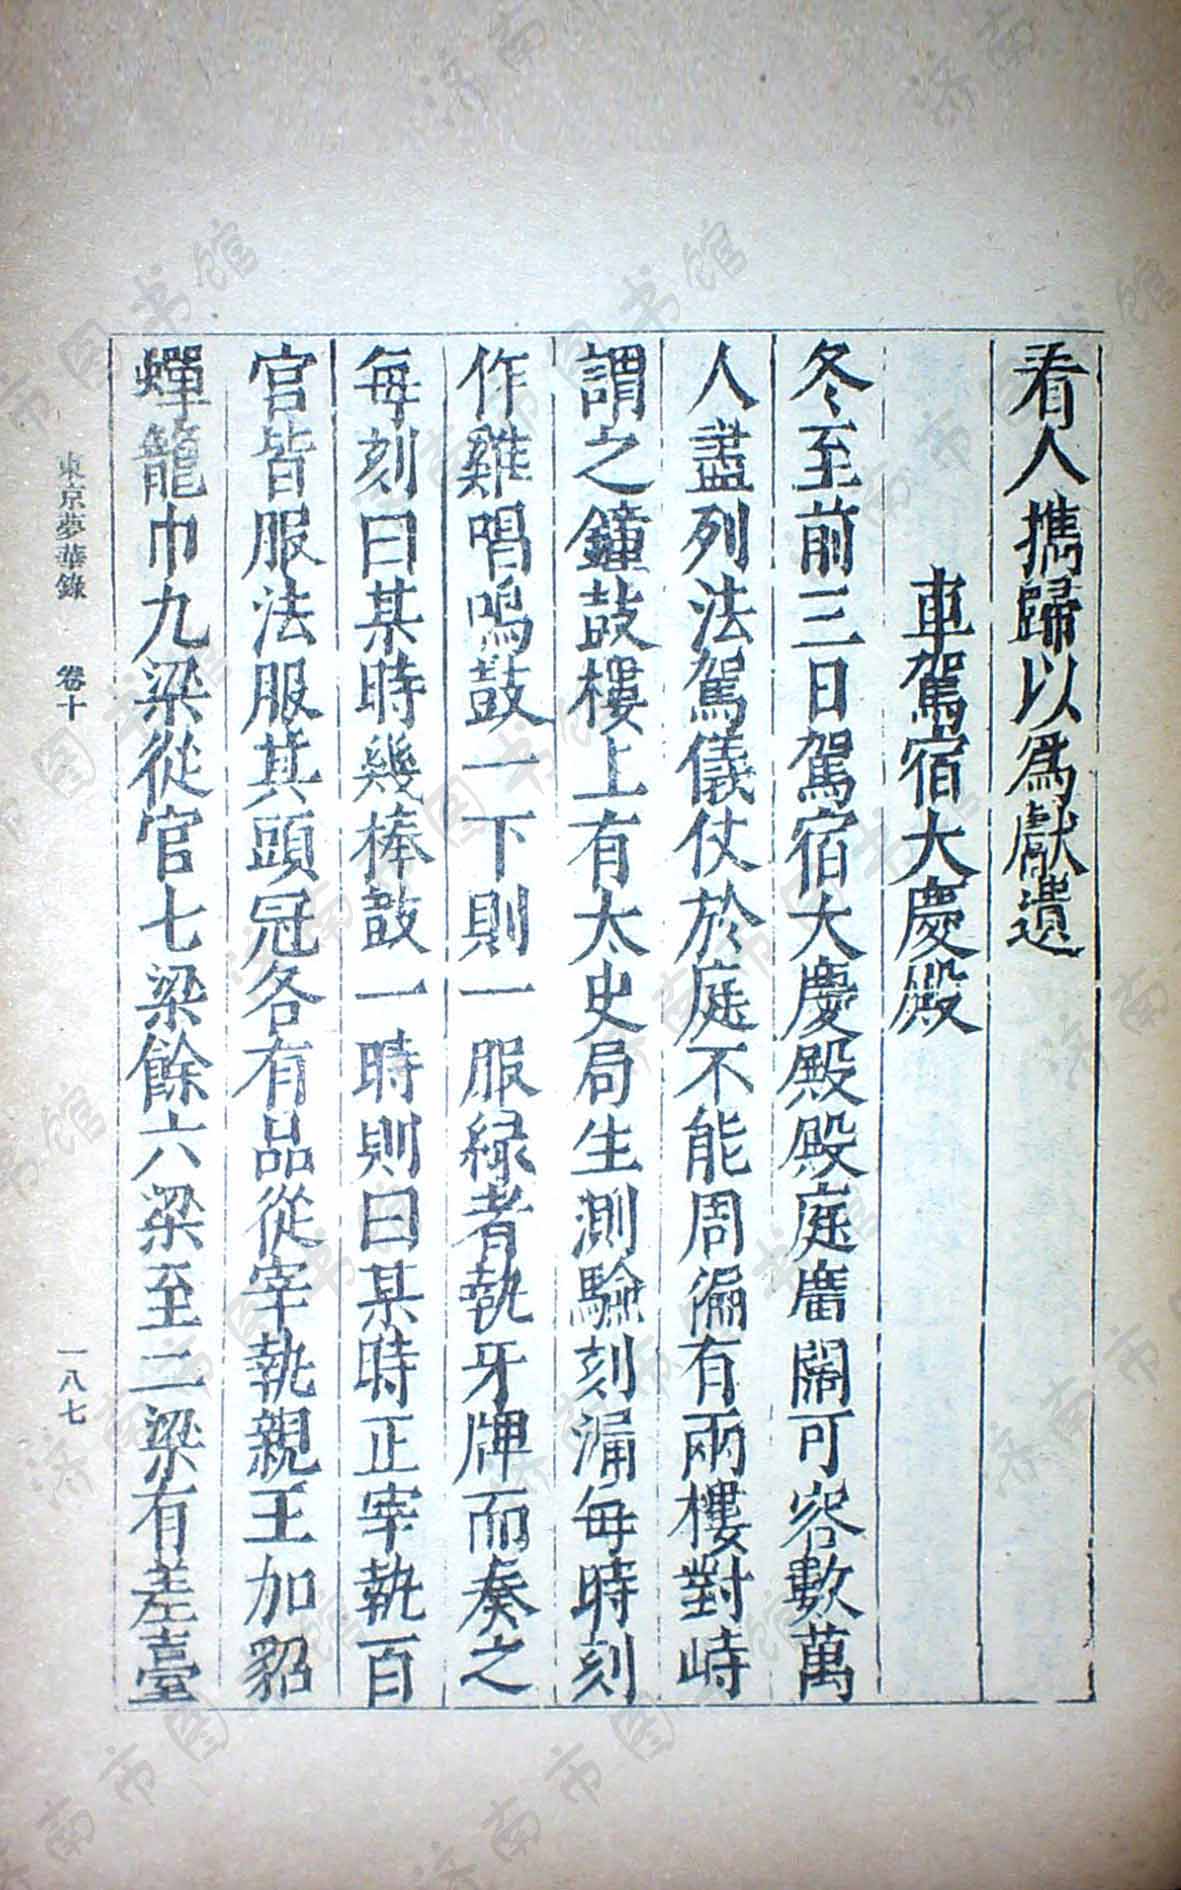 看人携歸以爲獻遺
車駕宿大慶殿
冬至前三日駕宿大慶殿殿庭廣闊可容數萬
人盡列法駕儀仗於庭不能周徧有兩樓對峙
謂之鐘鼓樓上有太史局生測驗刻漏每時刻
作雞唱鳴鼓一下則一服綠者執牙牌而奏之
每刻曰某時幾棒鼓一時則曰某時正宰執百
官皆服法服其頭冠各有品從宰執親王加貂
蟬籠巾九梁從官七梁餘六梁至二梁有差臺
東京夢華錄 卷十 一八七
济南市图书馆